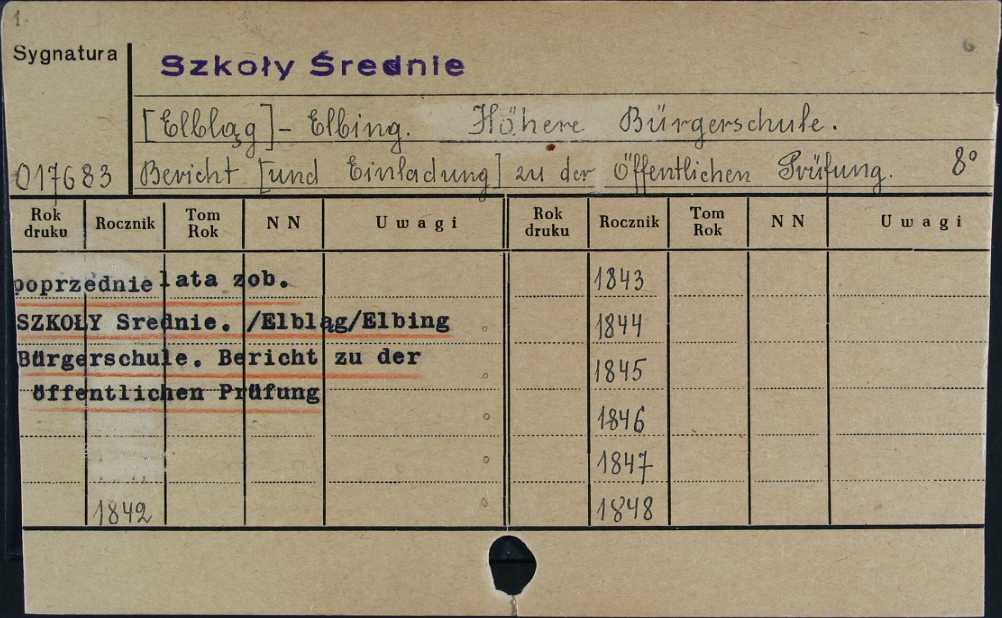 1.
6
Sygnatura
Szkoły Średnie
[Elbląg] - Elbing. Höhere Bürgerschule.
017683 Bericht [und Einladung] zu der öffentlichen Prüfung. 8°
Rok druku Rocznik Tom Rok N N Uwagi Rok druku Rocznik Tom Rok N N Uwagi
poprzednie lata zob.
SZKOŁY Srednie. /Elbląg/Elbing
Bürgerschule. Bericht zu der
öffentlichen Prüfung
1842
1843
1844
1845
1846
1847
1848